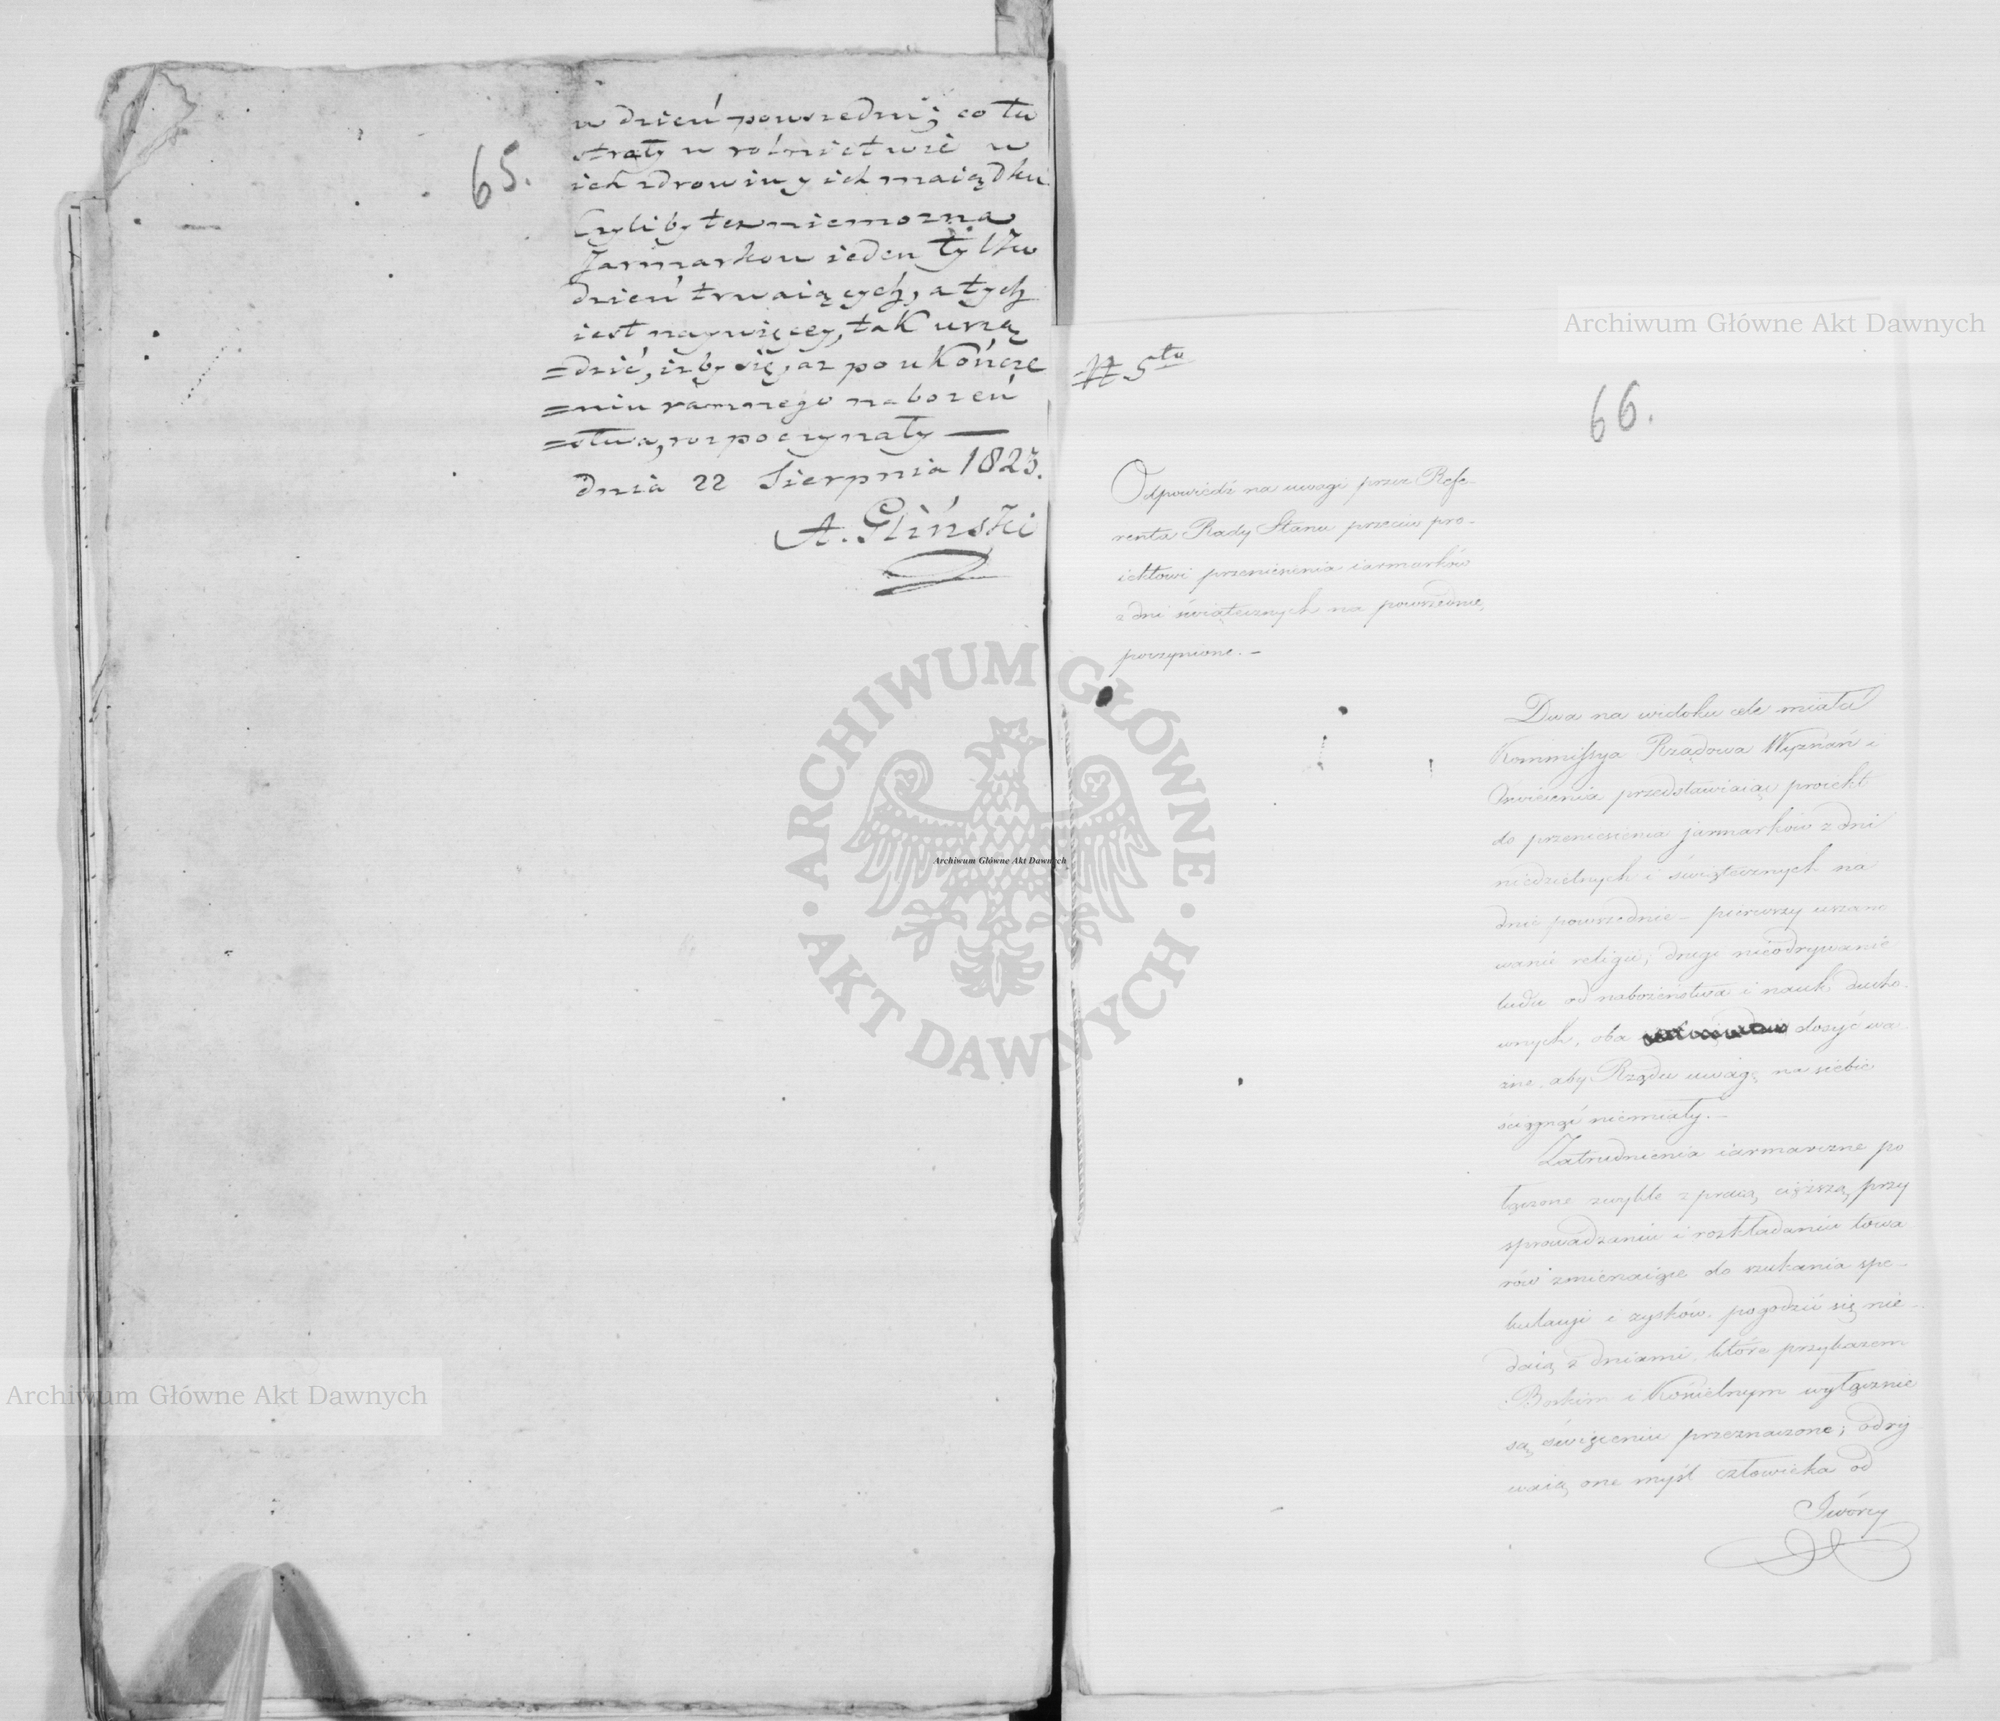 65.
w dzień powszedni; co tu
straty w rolnictwie w
ich zdrowiu y ich maiądku
Czyliby też niemożna
Jarmarkow ieden tylko
dzień trwaiących, a tych
iest naywięcey, tak urzą
=dzić, iżby się, aż po ukończe
=niu rannego nabożeń
=stwa, rozpoczynały —
dnia 22 Sierpnia 1823.
A. Gliński
N 5to
66.
Odpowiedź na uwagi przez Refe-
renta Rady Stanu przeciw pro-
iektowi przeniesienia iarmarków
z dni świątecznych na powszednie,
poczynione. –
Dwa na widoku cele miała
Kommissya Rządowa Wyznań i
Oświecenia przedstawiaiąc proiekt
do przeniesienia jarmarków z dni
niedzielnych i świątecznych na
dnie powszednie – pierwszy uszano
wanie religii; drugi nieodrywanie
ludu od nabożeństwa i nauk ducho-
wnych, oba dosyć wa
żne, aby Rządu uwagę na siebie
ściągnąć niemiały. –
Zatrudnienia iarmarczne po
łączone zwykle z pracą cięższą, przy
sprowadzaniu i rozkładaniu towa
rów zmienaiące do szukania spe-
kulacyi i zysków, pogodzić się nie-
daią z dniami, które przykazem
Boskim i Kościelnym wyłącznie
są święceniu przeznaczone; odry
waią one myśl człowieka od
Stwórcy
Archiwum Główne Akt Dawnych
Archiwum Główne Akt Dawnych
Archiwum Główne Akt Dawnych
ARCHIWUM GŁÓWNE · AKT DAWNYCH ·